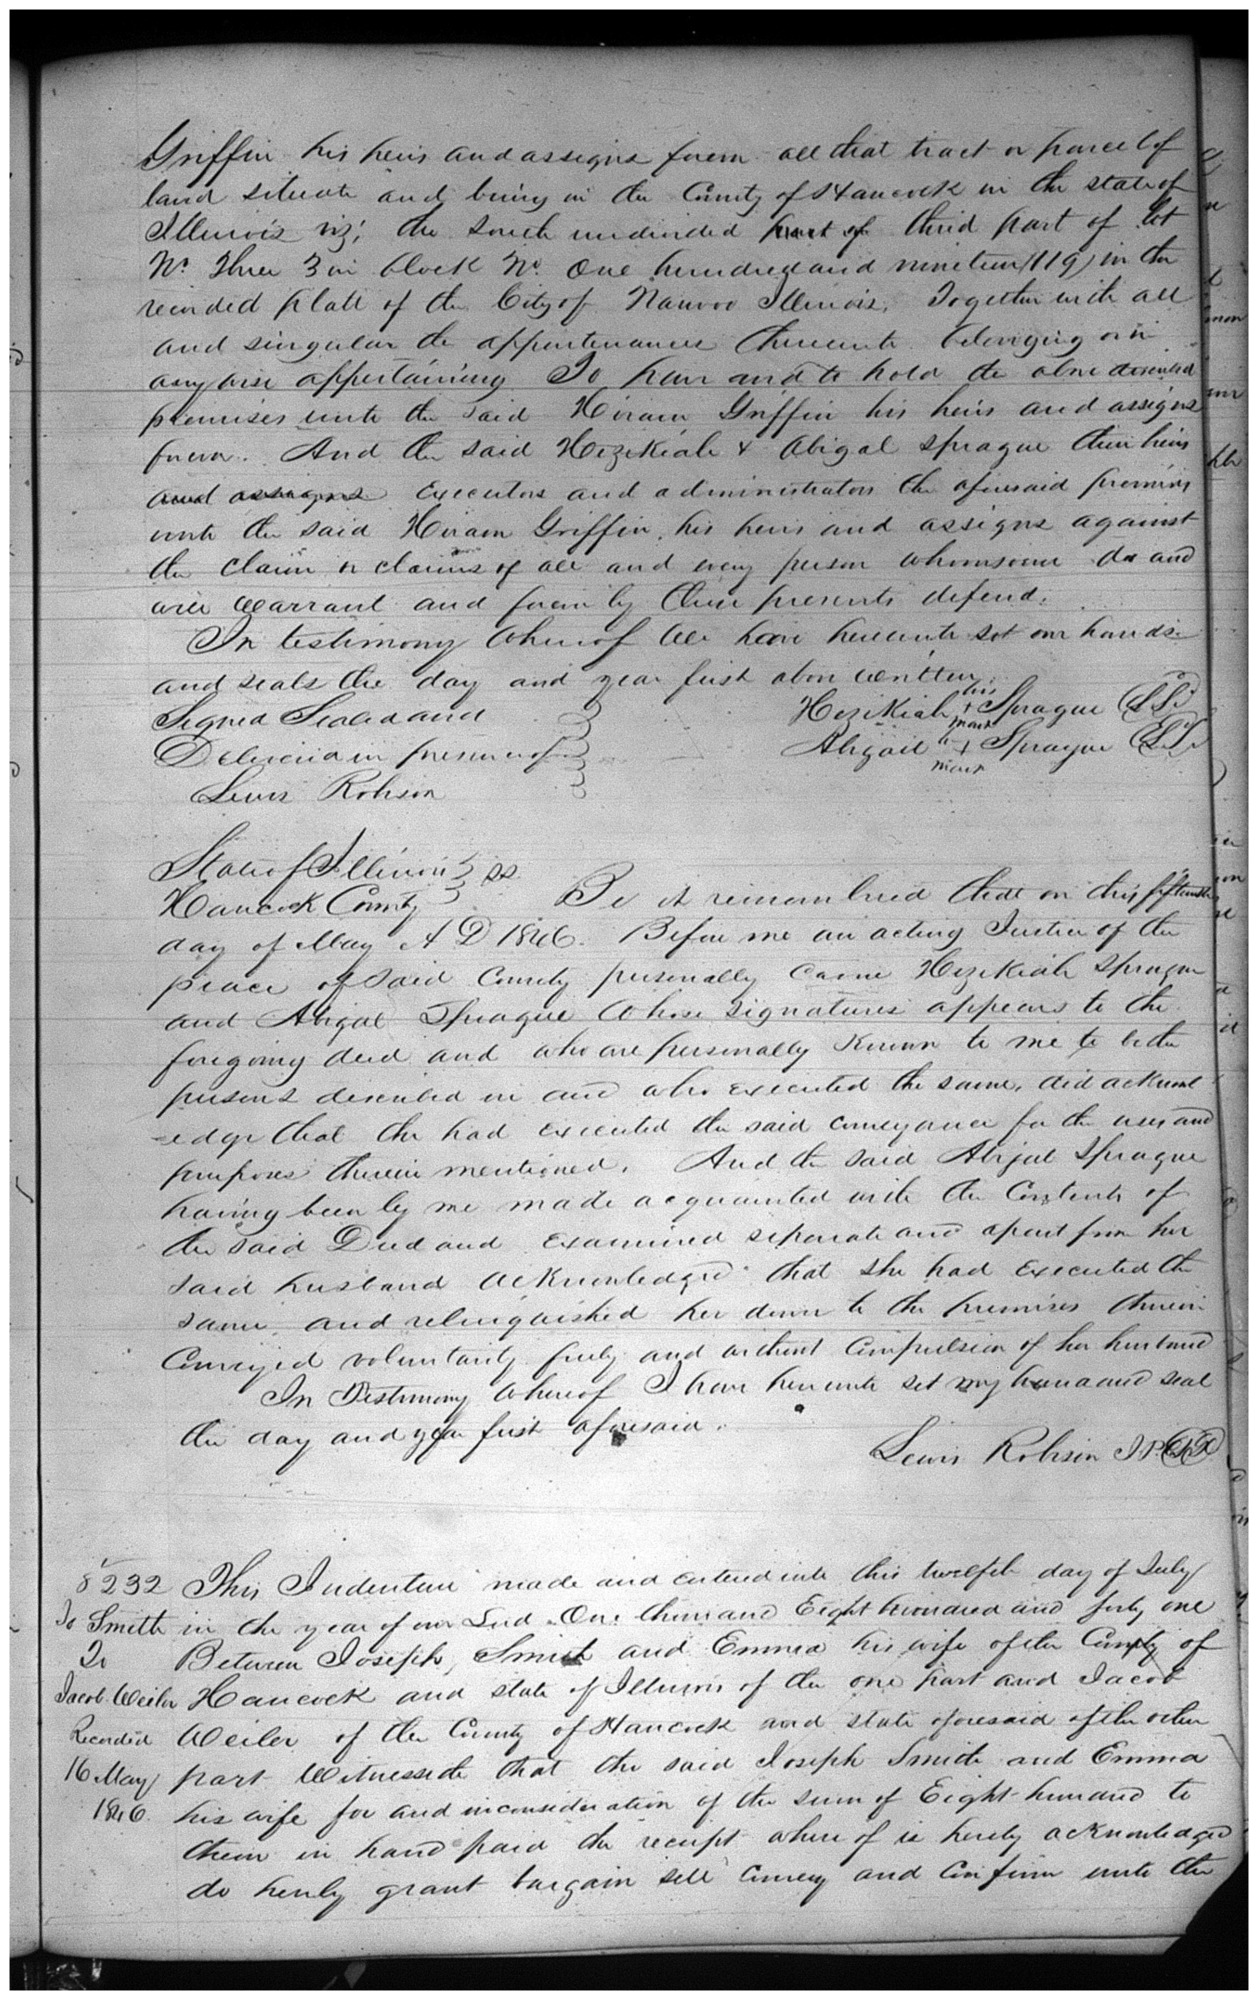 Griffin his heirs and assigns forever all that tract or parcel of
land situate and being in the County of Hancock in the state of
Illinois viz; the south undivided part of third part of lot
No. Three 3 in block No. One hundred and nineteen (119) in the
recorded platt of the City of Nauvoo Illinois. Together with all
and singular the appurtenances thereunto belonging or in
any wise appertaining To have and to hold the above described
premises unto the said Hiram Griffin his heirs and assigns
forever. And the said Hezekiah & Abigal Sprague their heirs
and assigns executors and administrators the aforesaid premises
unto the said Hiram Griffin, his heirs and assigns against
the claim or claims of all and every person whomsoever do and
will warrant and forever by these presents defend.
In testimony whereof We have hereunto set our hands
and seals the day and year first above written.
Signed Sealed and
Delivered in presence of
Lewis Robison
Hezikiah his + mark Sprague (LS)
Abigail h + mark Sprague (LS)
State of Illinois } ss
Hancock County } Be it remembered that on this fifteenth
day of May A D 1846. Before me an acting Justice of the
peace of said County personally came Hezekiah Sprague
and Abigal Sprague whose signatures appears to the
foregoing deed and who are personally known to me to be the
persons described in and who executed the same, did acknowl
-edge that the had executed the said conveyance for the uses and
purposes therein mentioned. And the said Abigal Sprague
having been by me made acquainted with the Contents of
the said Deed and examined separate and apart from her
said husband acknowledged that she had executed the
same, and relinquished her dower to the premises therein
Conveyed voluntarily freely and without Compulsion of her husband
In Testimony whereof I have hereunto set my hand and seal
the day and year first aforesaid.
Lewis Robison J.P.
8232 This Indenture made and entered into this twelfth day of July
Jo Smith in the year of our Lord One thousand Eight hundred and forty one
To Between Joseph Smith and Emma his wife of the County of
Jacob Weiler Hancock and state of Illinois of the one part and Jacob
Recorded Weiler of the County of Hancock and state aforesaid of the other
16 May part Witnesseth that the said Joseph Smith and Emma
1846. his wife for and inconsideration of the sum of Eight hundred to
them in hand paid the receipt where of is hereby acknowledged
do hereby grant bargain sell convey and confirm unto the